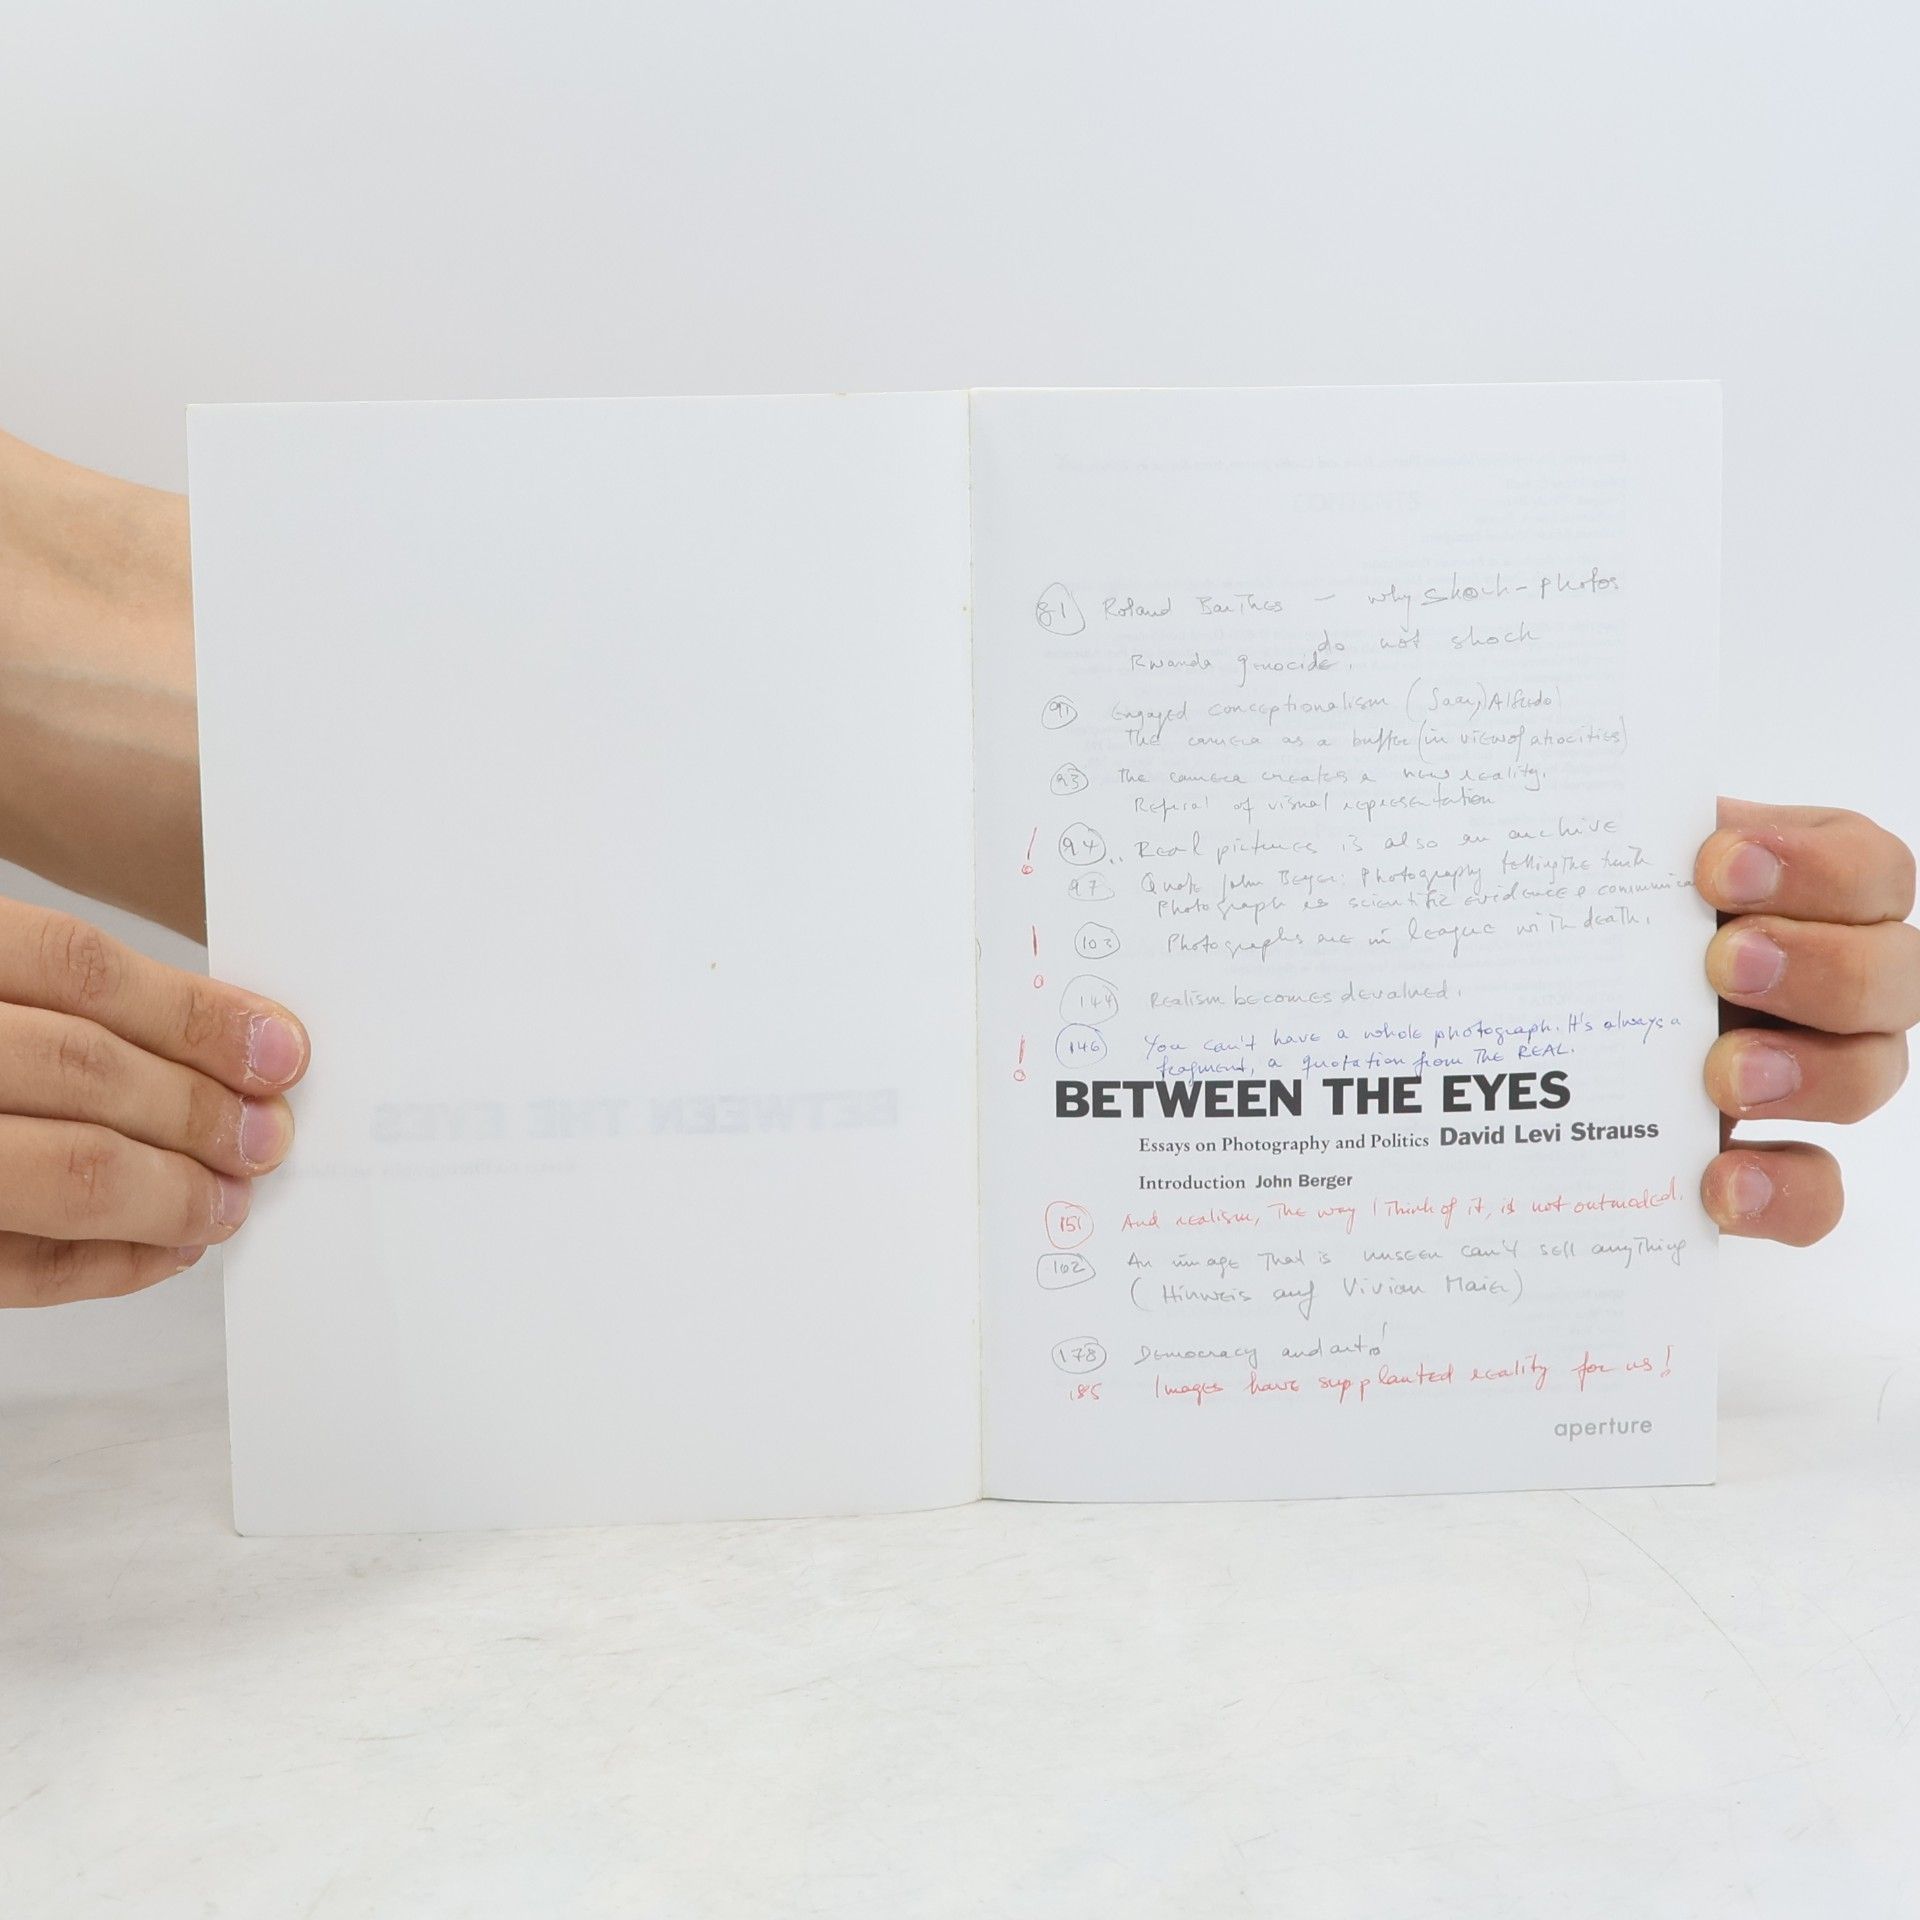 81 Roland Barthes – why shock-photos
do not shock
Rwanda genocide.
91 Engaged conceptionalism (Jaar, Alfredo)
The camera as a buffer (in view of atrocities)
93 The camera creates a new reality.
Refusal of visual representation
! 94.. Real pictures is also an archive
97 Quote John Berger: Photography telling The truth
Photograph as scientific evidence & communica
! 103 Photographs are in league with death.
144 Realism becomes devalued.
! 146 You can't have a whole photograph. It's always a
fragment, a quotation from The REAL.
BETWEEN THE EYES
Essays on Photography and Politics David Levi Strauss
Introduction John Berger
151 And realism, The way I Think of it, is not outmoded.
162 An image That is unseen can't sell anyThing
(Hinweis auf Vivian Maier)
178 Democracy and art!
185 Images have supplanted reality for us!
aperture